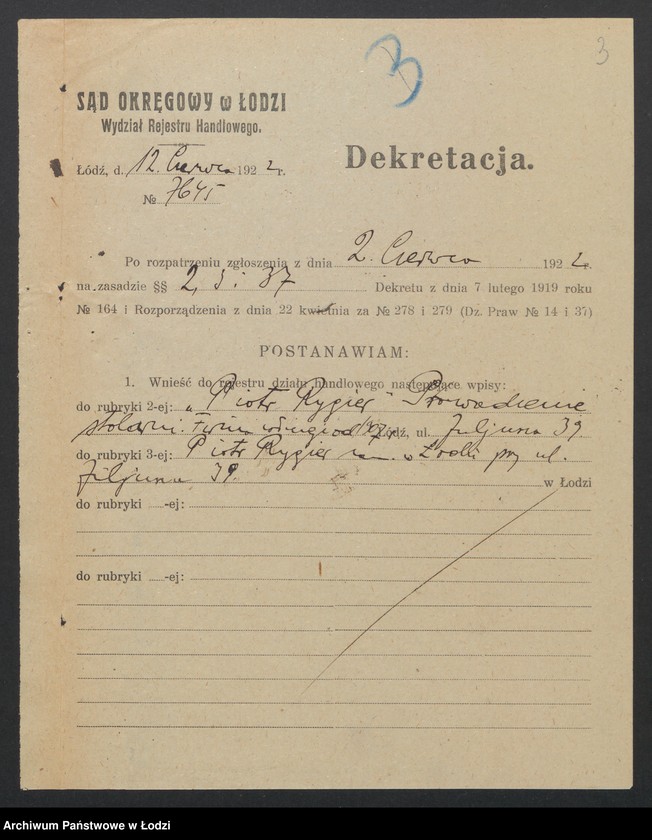 3
3
SĄD OKRĘGOWY w ŁODZI
Wydział Rejestru Handlowego.
Dekretacja.
Łódź, d. 12. Czerwca 1922 r.
№ 7645
Po rozpatrzeniu zgłoszenia z dnia 2. Czerwca 1922 r.
na zasadzie §§ 2, 5 i 37 Dekretu z dnia 7 lutego 1919 roku
№ 164 i Rozporządzenia z dnia 22 kwietnia za № 278 i 279 (Dz. Praw № 14 i 37)
POSTANAWIAM:
1. Wnieść do rejestru działu handlowego następujące wpisy:
do rubryki 2-ej: „Piotr Rygier" Prowadzenie
stolarni. Firma istnieje od Łódź, ul. Juljusza 39.
do rubryki 3-ej: Piotr Rygier zam. w Łodzi przy ul.
Juljusza 39. w Łodzi
do rubryki -ej:
do rubryki -ej:
Archiwum Państwowe w Łodzi